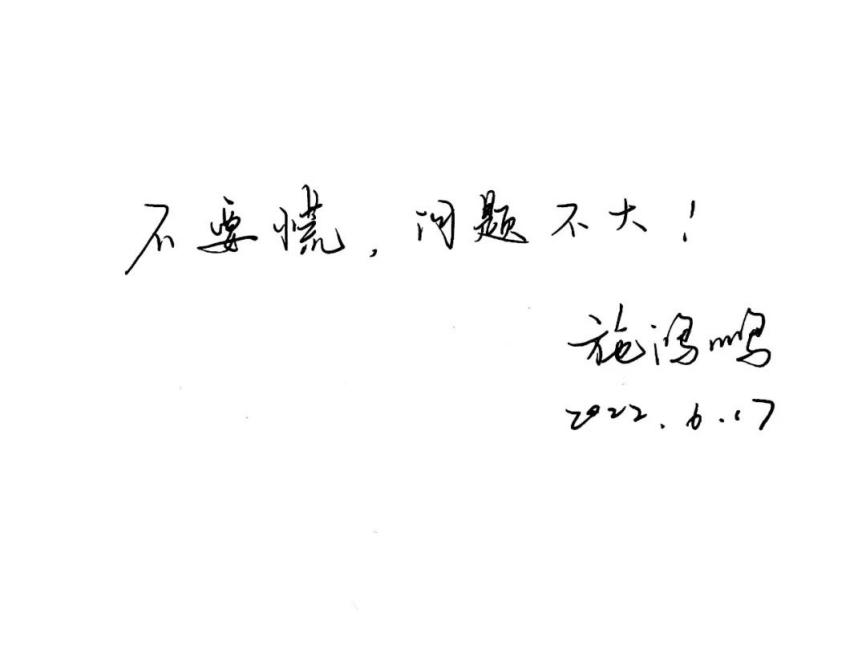 不要慌，问题不大！
施鸿鹏
2022.6.17